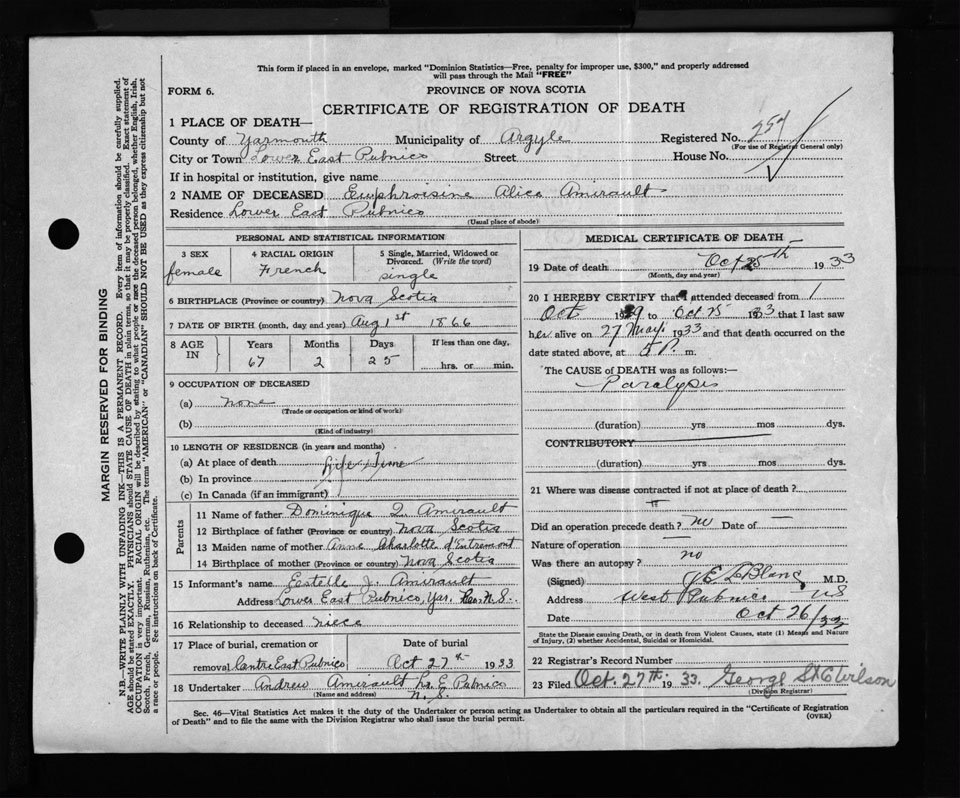 This form if placed in an envelope, marked "Dominion Statistics—Free, penalty for improper use, $300," and properly addressed
will pass through the Mail "FREE"
FORM 6.
PROVINCE OF NOVA SCOTIA
CERTIFICATE OF REGISTRATION OF DEATH
1 PLACE OF DEATH—
County of Yarmouth Municipality of Argyle Registered No. 257
(For use of Registrar General only)
City or Town Lower East Pubnico Street House No.
If in hospital or institution, give name
2 NAME OF DECEASED Euphroisine Alice Amirault
Residence Lower East Pubnico
(Usual place of abode)
PERSONAL AND STATISTICAL INFORMATION
3 SEX 4 RACIAL ORIGIN 5 Single, Married, Widowed or
Divorced. (Write the word)
female French single
6 BIRTHPLACE (Province or country) Nova Scotia
7 DATE OF BIRTH (month, day and year) Aug 1st 1866
8 AGE IN Years Months Days If less than one day,
67 2 25 hrs. or min.
9 OCCUPATION OF DECEASED
(a) none
(Trade or occupation or kind of work)
(b)
(Kind of industry)
10 LENGTH OF RESIDENCE (in years and months)
(a) At place of death Life Time
(b) In province
(c) In Canada (if an immigrant)
Parents
11 Name of father Dominique L. Amirault
12 Birthplace of father (Province or country) Nova Scotia
13 Maiden name of mother Anne Charlotte d'Entremont
14 Birthplace of mother (Province or country) Nova Scotia
15 Informant's name Estelle J. Amirault
Address Lower East Pubnico, Yar. Co. N.S.
16 Relationship to deceased niece
17 Place of burial, cremation or Date of burial
removal Centre East Pubnico Oct 27th 1933
18 Undertaker Andrew Amirault Lr. E. Pubnico
(Name and address) N.S.
MEDICAL CERTIFICATE OF DEATH
19 Date of death Oct 25th 1933
(Month, day and year)
20 I HEREBY CERTIFY that I attended deceased from 1
Oct 1929 to Oct 25 1933 that I last saw
her alive on 27 May 1933 and that death occurred on the
date stated above, at 5 P. m.
The CAUSE of DEATH was as follows:—
Paralysis
(duration) yrs mos dys.
CONTRIBUTORY
(duration) yrs mos dys.
21 Where was disease contracted if not at place of death?
Did an operation precede death? no Date of —
Nature of operation —
Was there an autopsy? no
(Signed) J E LeBlanc M.D.
Address West Pubnico NS
Date Oct 26/33
State the Disease causing Death, or in death from Violent Causes, state (1) Means and Nature
of Injury, (2) whether Accidental, Suicidal or Homicidal.
22 Registrar's Record Number
23 Filed Oct. 27th. 1933. George St C Wilson
(Division Registrar)
Sec. 46—Vital Statistics Act makes it the duty of the Undertaker or person acting as Undertaker to obtain all the particulars required in the "Certificate of Registration
of Death" and to file the same with the Division Registrar who shall issue the burial permit. (OVER)
MARGIN RESERVED FOR BINDING
N.B.—WRITE PLAINLY WITH UNFADING INK—THIS IS A PERMANENT RECORD. Every item of information should be carefully supplied.
AGE should be stated EXACTLY. PHYSICIANS should STATE CAUSE OF DEATH in plain terms, so that it may be properly classified. Exact statement of
OCCUPATION is very important. RACIAL ORIGIN will be described by stating to what people or race the deceased person belonged, whether English, Irish,
Scotch, French, German, Russian, Ruthenian, etc. The terms "AMERICAN" or "CANADIAN" SHOULD NOT BE USED as they express citizenship but not
a race or people. See instructions on back of Certificate.